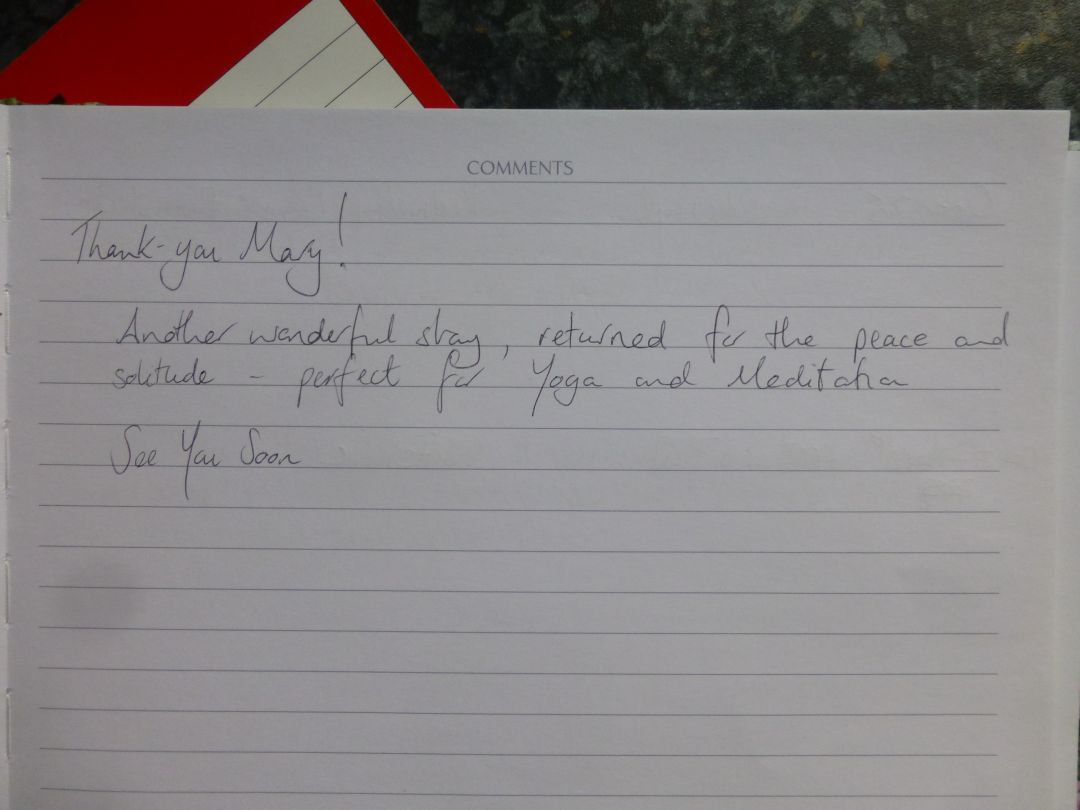 COMMENTS
Thank-you Mary!
Another wonderful stay, returned for the peace and
solitude - perfect for Yoga and Meditation
See You Soon